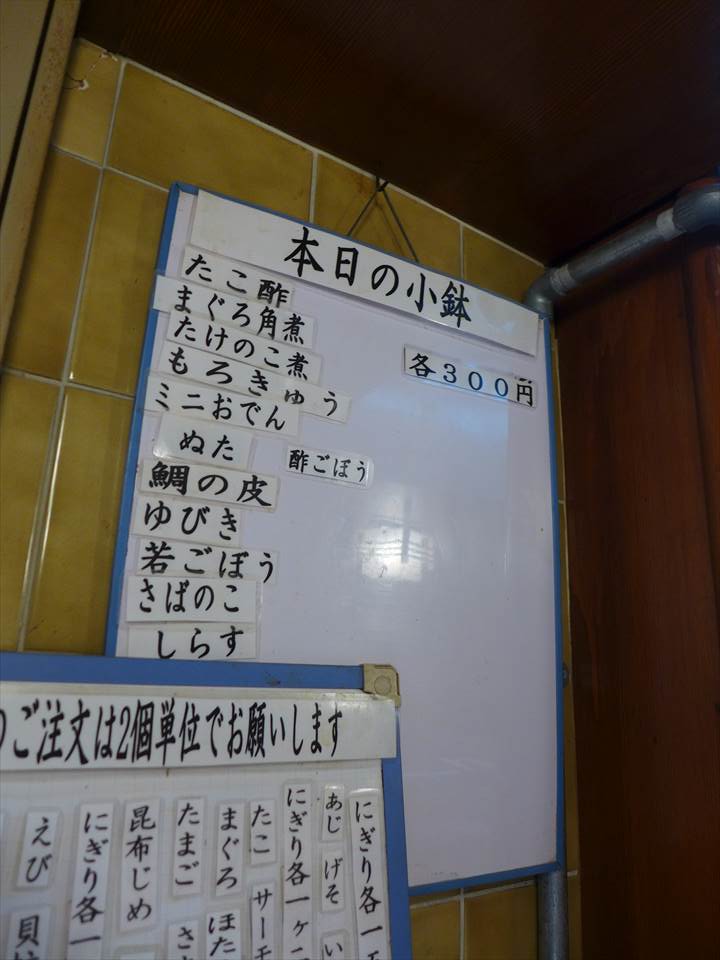 本日の小鉢
たこ酢
まぐろ角煮
たけのこ煮
各300円
もろきゅう
ミニおでん
ぬた
酢ごぼう
鯛の皮
ゆびき
若ごぼう
さばのこ
しらす
ご注文は2個単位でお願いします
にぎり各一
あじ げそ
にぎり各一ケ
たこ サーモ
まぐろ ほた
たまご
昆布じめ
にぎり各一
えび 貝